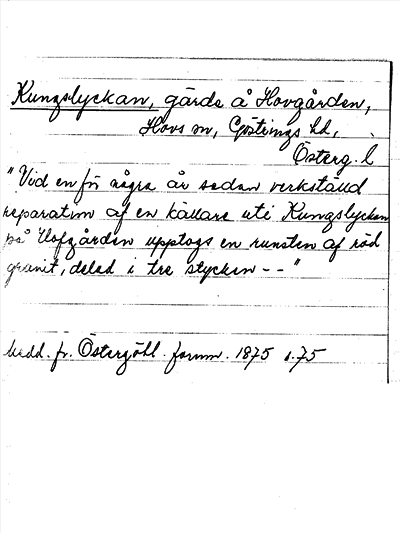 Kungslyckan, gärde å Hovgården,
Hovs sn, Göstrings hd,
Österg. l
"Vid en för några år sedan verkstäld
reparation af en källare uti Kungslyckan
på Hofgården upptogs en runsten af röd
granit, delad i tre stycken - - "
Medd. fr. Östergötl. fornm. 1875 s. 75